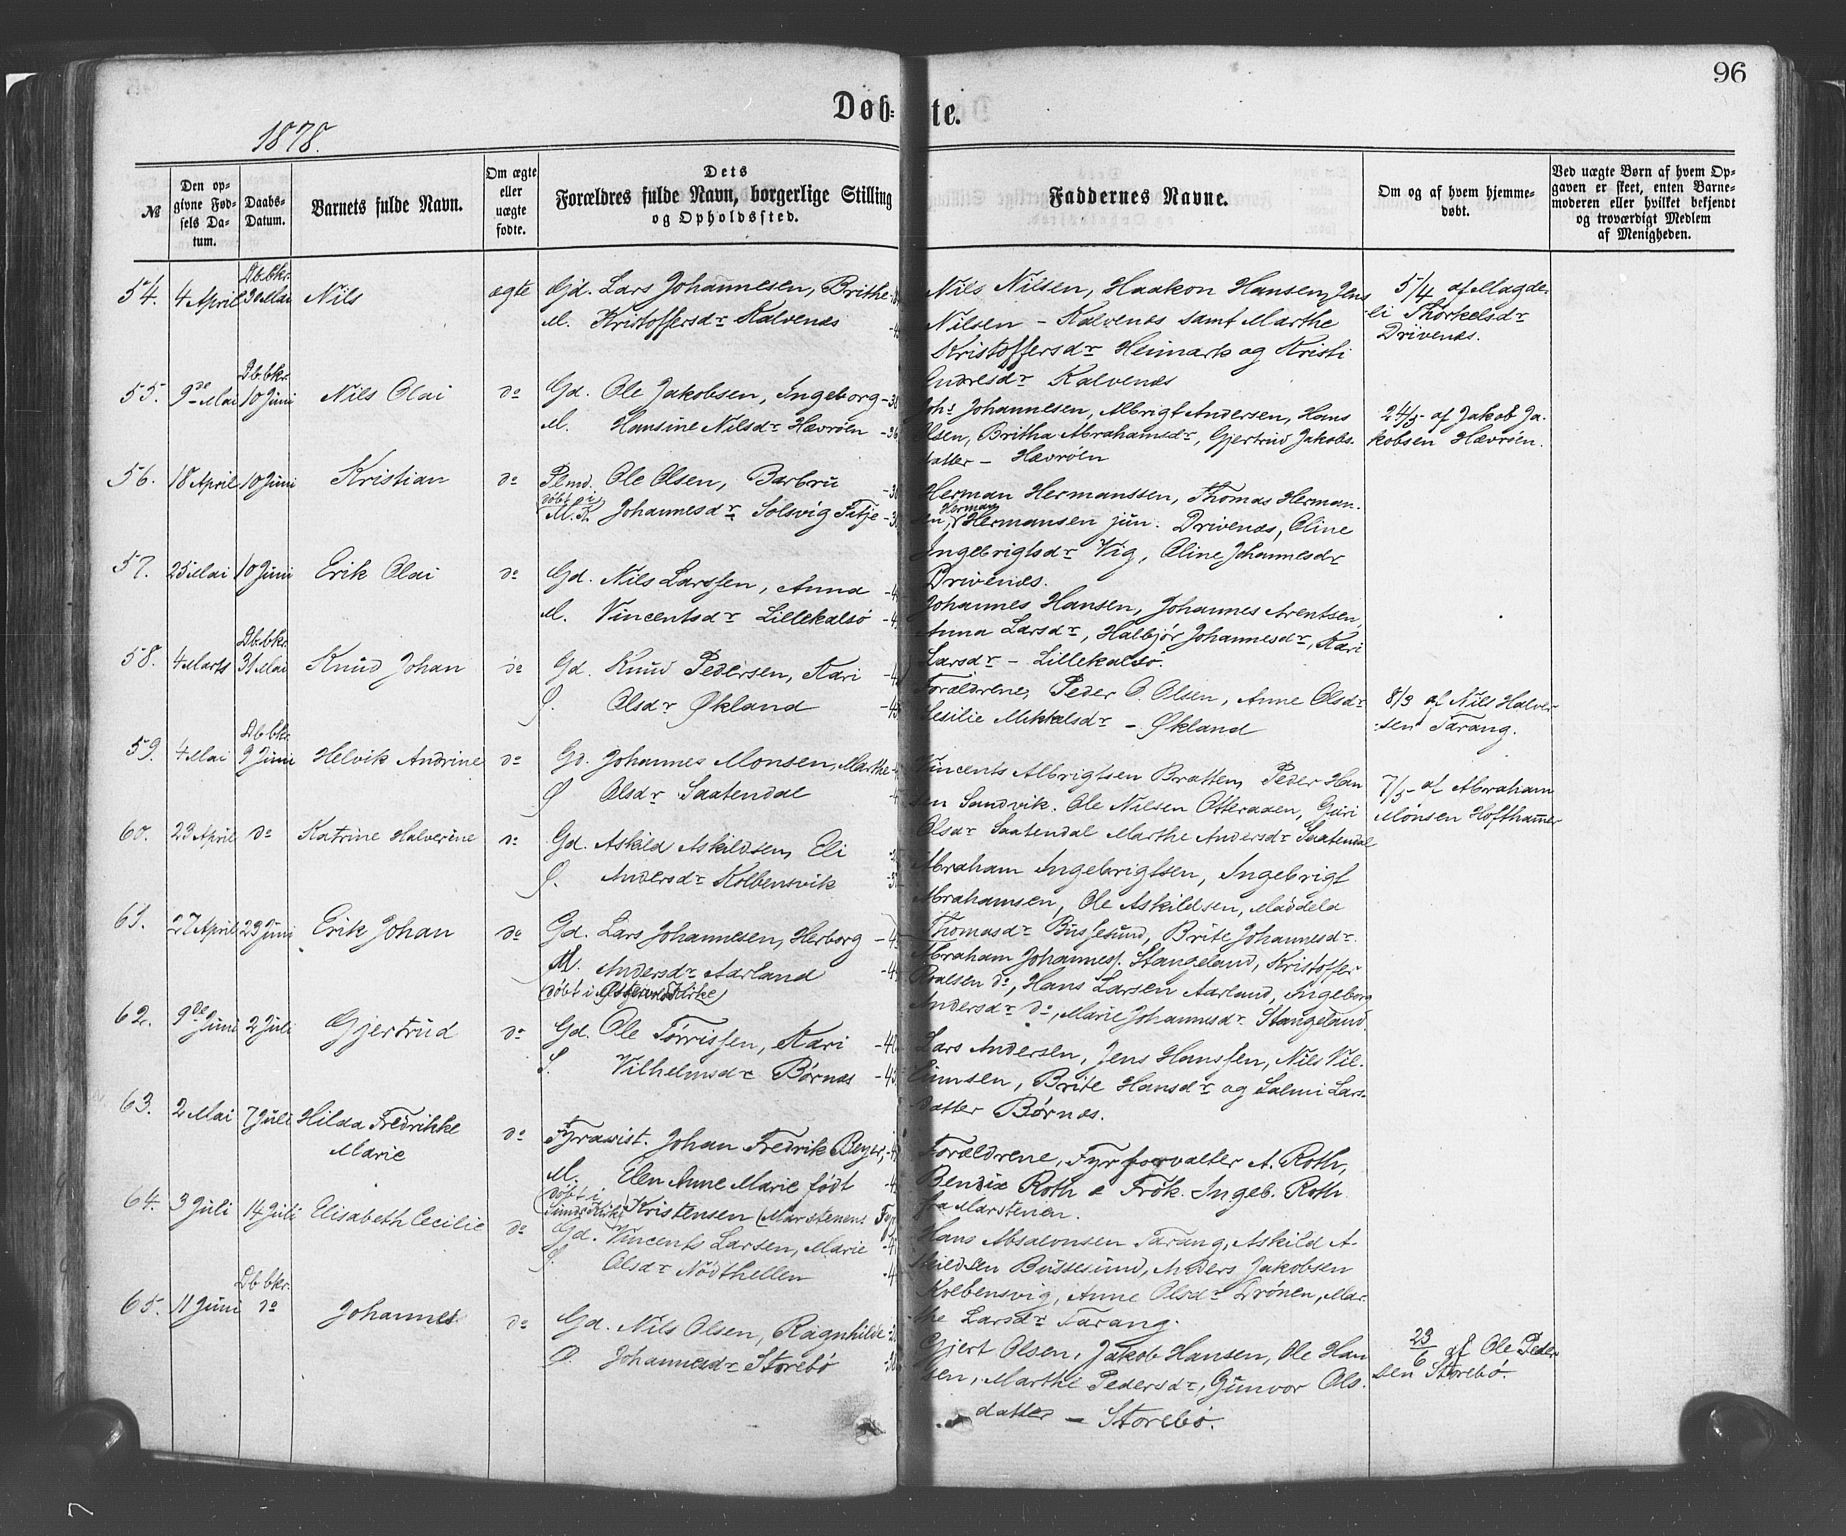 96
Døb- te.
1878.
№
Den op-
givne Fød-
sels Da-
tum.
Daabs-
Datum.
Barnets fulde Navn.
Om ægte
eller
uægte
fødte.
Dets
Forældres fulde Navn, borgerlige Stilling
og Opholdssted.
Faddernes Navne.
Om og af hvem hjemme-
døbt.
Ved uægte Børn af hvem Op-
gaven er skeet, enten Barne-
moderen eller hvilket bekjendt
og troværdigt Medlem
af Menigheden.
54. 4 April Db.bkr. 30 Mai Nils ægte Gd. Lars Johannesen, Brithe
M. Kristoffersdr Kalvenes
Nils Nilsen, Haakon Hansen, Jens
Nilsen – Kalvenes samt Marthe
Kristoffersdr Heimark og Kristi
Andresdr Kalvenes
5/4 af Magde-
li Thorkelsdr
Drivenes.
55. 9de Mai Db.bkr. 10 Juni Nils Olai do Gd. Ole Jakobsen, Ingeborg -38
M. Hansine Nilsdr Hevrøen -36
Johs Johannesen, Albrigt Andersen, Hans
Olsen, Britha Abrahamsdr, Gjertrud Jakobs-
datter – Hevrøen
24/5 af Jakob Ja-
kobsen Hevrøen.
56. 18 April 10 Juni Kristian do Plmd. Ole Olsen, Barbru
døbt i
M. K. Johannesdr Solsvig Fitje
Herman Hermanssen, Thomas Herman-
sen, Herman Hermansen jun. Drivenes, Oline
Ingebrigtsdr Vig, Oline Johannesdr
Drivenes.
57. 25 Mai 10 Juni Erik Olai do Gd. Nils Larssen, Anna
M. Vincentsdr Lillekalsø
Johannes Hansen, Johannes Arentsen,
Anna Larsdr, Halbjør Johannesdr, Kari
Larsdr – Lillekalsø.
58. 4 Marts Db.bkr. 31 Mai Knud Johan do Gd. Knud Pedersen, Kari
Ø. Olsdr Økland
Forældrene, Peder O. Olsen, Anne Olsdr
Sesilie Mikkalsdr – Økland
8/3 af Nils Halver-
sen Tarang.
59. 4 Mai Db.bkr. 9 Juni Helvik Andrine do Gd. Johannes Monsen, Marthe
Ø Olsdr Saatendal
Vincents Albrigtsen Bratten, Peder Han-
sen Sandvik. Ole Nilsen Otteraaen, Guri
Olsdr Saatendal Marthe Andersdr Saatendal
7/5 af Abraham
Monsen Hofthamer
60. 23 April do Katrine Halverine do Gd. Askild Askildsen, Eli
Ø. Andersdr Kolbensvik
Abraham Ingebrigtsen, Ingebrigt
Abrahamsen, Ole Askildsen, Maddela
Thomasdr Bussesund, Brite Johannesdr.
61. 27 April 23 Juni Erik Johan do Gd. Lars Johannesen, Herborg
M. Andersdr Aarland
(døbt i Kirke)
Abraham Johanness. Stangeland, Kristoffer
Roalsen do, Hans Larsen Aarland, Ingeborg
Andersdr do, Marie Johannesdr Stangeland
62. 9de Juni 2 Juli Gjertrud do Gd. Ole Tørrissen, Kari
S. Vilhelmsdr Børnes
Lars Andersen, Jens Hanssen, Nils Vil-
lumsen, Brite Hansdr og Salmi Lars-
datter Børnes.
63. 2 Mai 7 Juli Hilda Fredrikke
Marie
do Fyrassist. Johan Fredrik Beyer,
M. Elen Anne Marie født
(døbt i Sunds Kirk) Kristensen (Marstenens Fyr
Forældrene, Fyrforvalter A. Roth,
Bendix Roth & Frøk. Ingeb. Roth
fra Marstenen.
64. 3 Juli 14 Juli Elisabeth Cecilie do Gd. Vincents Larsen, Marie
Ø. Olsdr Nødthellen
Hans Absalonsen Tarang, Askild A-
skildsen Bussesund, Anders Jakobsen
Kolbensvig, Anne Olsdr Drønen, Mar-
the Larsdr Tarang.
65. 11 Juni Db.bkr. do Johannes do Gd. Nils Olsen, Ragnhilde
Ø. Johannesdr Storebø
Gjert Olsen, Jakob Hansen, Ole Han-
sen, Marthe Pedersdr, Gunvor Ols-
datter – Storebø.
23/6 af Ole Peder-
sen Storebø.
7